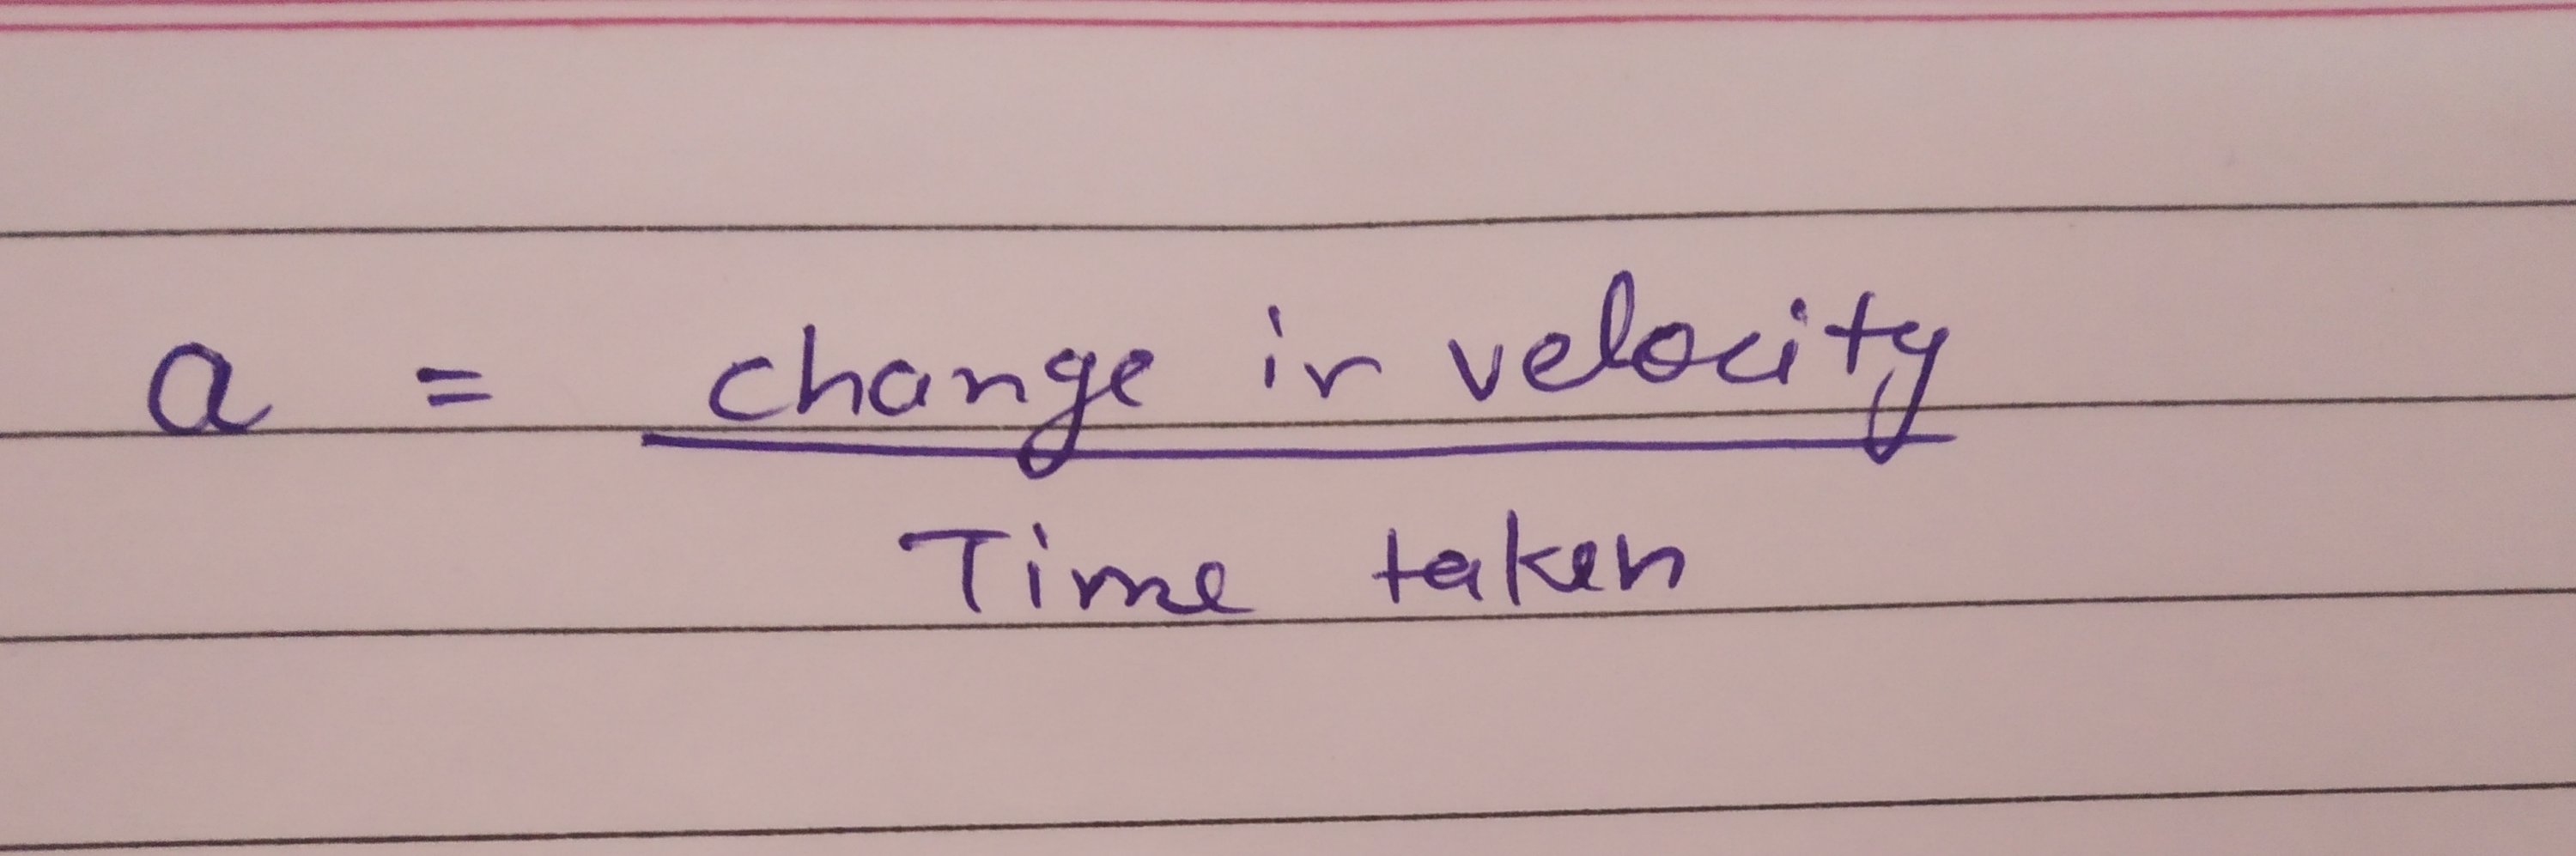 a = change in velocity
Time taken